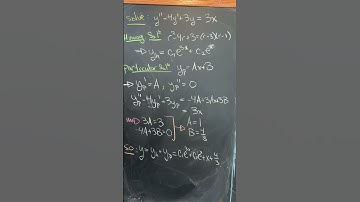 solve: y''-4y'+3y = 3x
Homog Sol⁰ r²-4r+3=(r-3)(r-1)
⇒ yₕ = c₁e³ˣ + c₂eˣ
particular Sol⁰ yₚ = Ax+B
⇒ yₚ' = A, yₚ'' = 0
yₚ''-4yₚ'+3yₚ = -4A+3Ax+3B
= 3x
3A = 3
-4A+3B=0
⇒ A = 1
B = 4/3
So: y = yₕ + yₚ = c₁e³ˣ+c₂eˣ+x+4/3